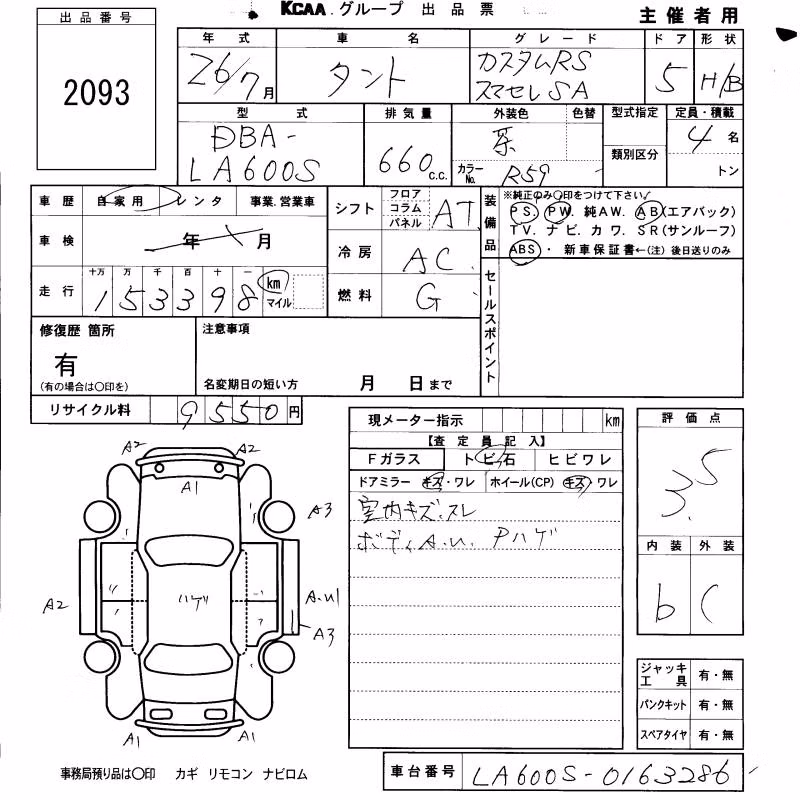 KCAA.グループ 出品票
主催者用
出品番号
2093
年式 車名 グレード ドア 形状
26/7月 タント カスタムRS スマセレSA 5 H/B
型式 排気量 外装色 色替 型式指定 定員・積載
DBA-LA600S 660c.c. 茶 類別区分 4名
カラーNo. R59 トン
車歴 自家用 レンタ 事業.営業車
シフト フロア コラム パネル AT
装備品 ※純正のみ○印をつけて下さい
PS. PW. 純AW. AB(エアバック)
TV. ナビ. カワ. SR(サンルーフ)
ABS・新車保証書←(注)後日送りのみ
車検 年 月
冷房 AC
走行 十万 万 千 百 十 一
153398 km マイル
燃料 G
セールスポイント
修復歴 箇所 注意事項
有
(有の場合は○印を) 名変期日の短い方 月 日まで
リサイクル料 9550円
現メーター指示 km
評価点
3.5
【査定員記入】
Fガラス トビ石 ヒビワレ
ドアミラー キズ・ワレ ホイール(CP) キズ・ワレ
室内キズ.スレ
ボディA.U. Pハゲ
内装 外装
b C
A2 A2
A1
A3
A2 ハゲ A.U1
A3
A1 A1
ジャッキ工具 有・無
パンクキット 有・無
スペアタイヤ 有・無
事務局預り品は○印 カギ リモコン ナビロム
車台番号 LA600S-0163286